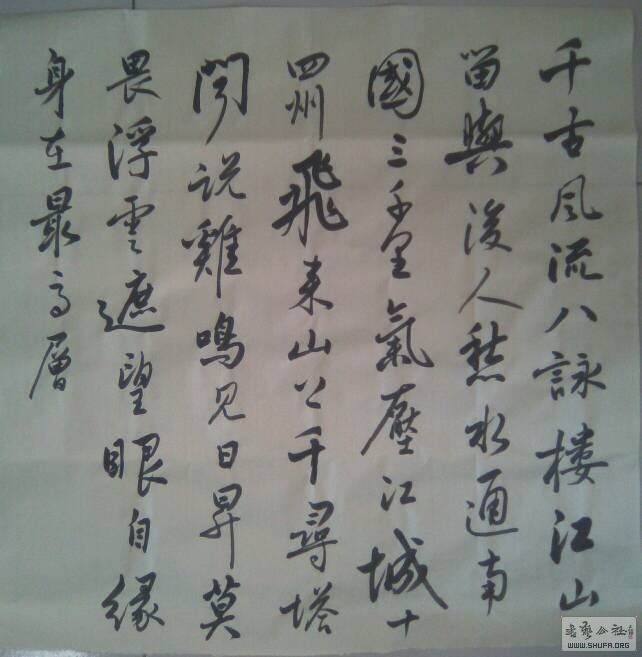 千古風流八詠樓江山
留與後人愁水通南
國三千里氣壓江城十
四州飛來山上千尋塔
聞說雞鳴見日昇莫
畏浮雲遮望眼自緣
身在最高層
書藝公社
WWW.SHUFA.ORG